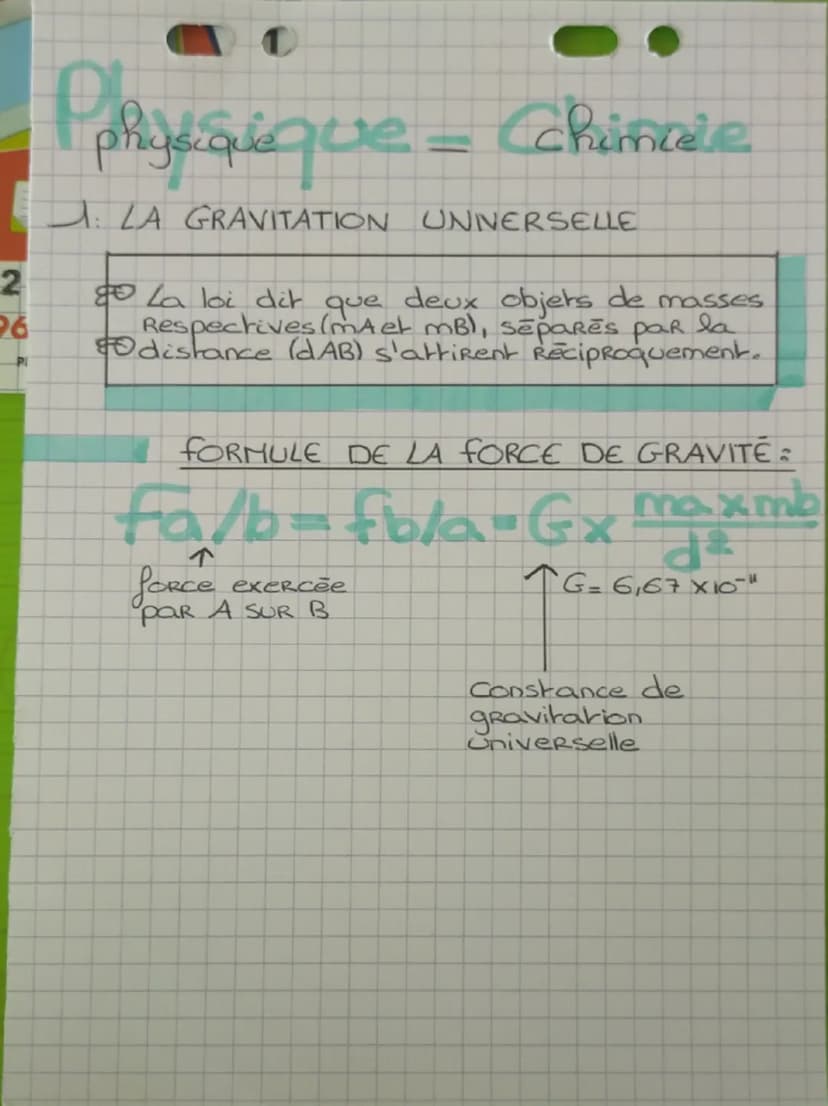 Physique = Chimie
physique chimie
1: LA GRAVITATION UNIVERSELLE
La loi dit que deux objets de masses
Respectives (mA et mB), séparés par la
distance (dAB) s'attirent Réciproquement.
FORMULE DE LA FORCE DE GRAVITÉ :
Fa/b = fb/a = G x ma x mb
d²
force exercée
par A SUR B
G = 6,67 x 10⁻¹¹
Constance de
gravitation
universelle
2
96